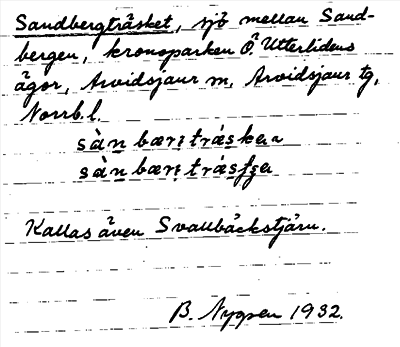 Sandbergträsket, sjö mellan Sand-
bergen, kronoparken Ö. Utterlidens
ägor, Arvidsjaur sn, Arvidsjaur tg,
Norrb. l.
sàn bæri̥ trás
sàn bæri̥ trás
Kallas även Svallbäckstjärn.
B. Nygren 1932.